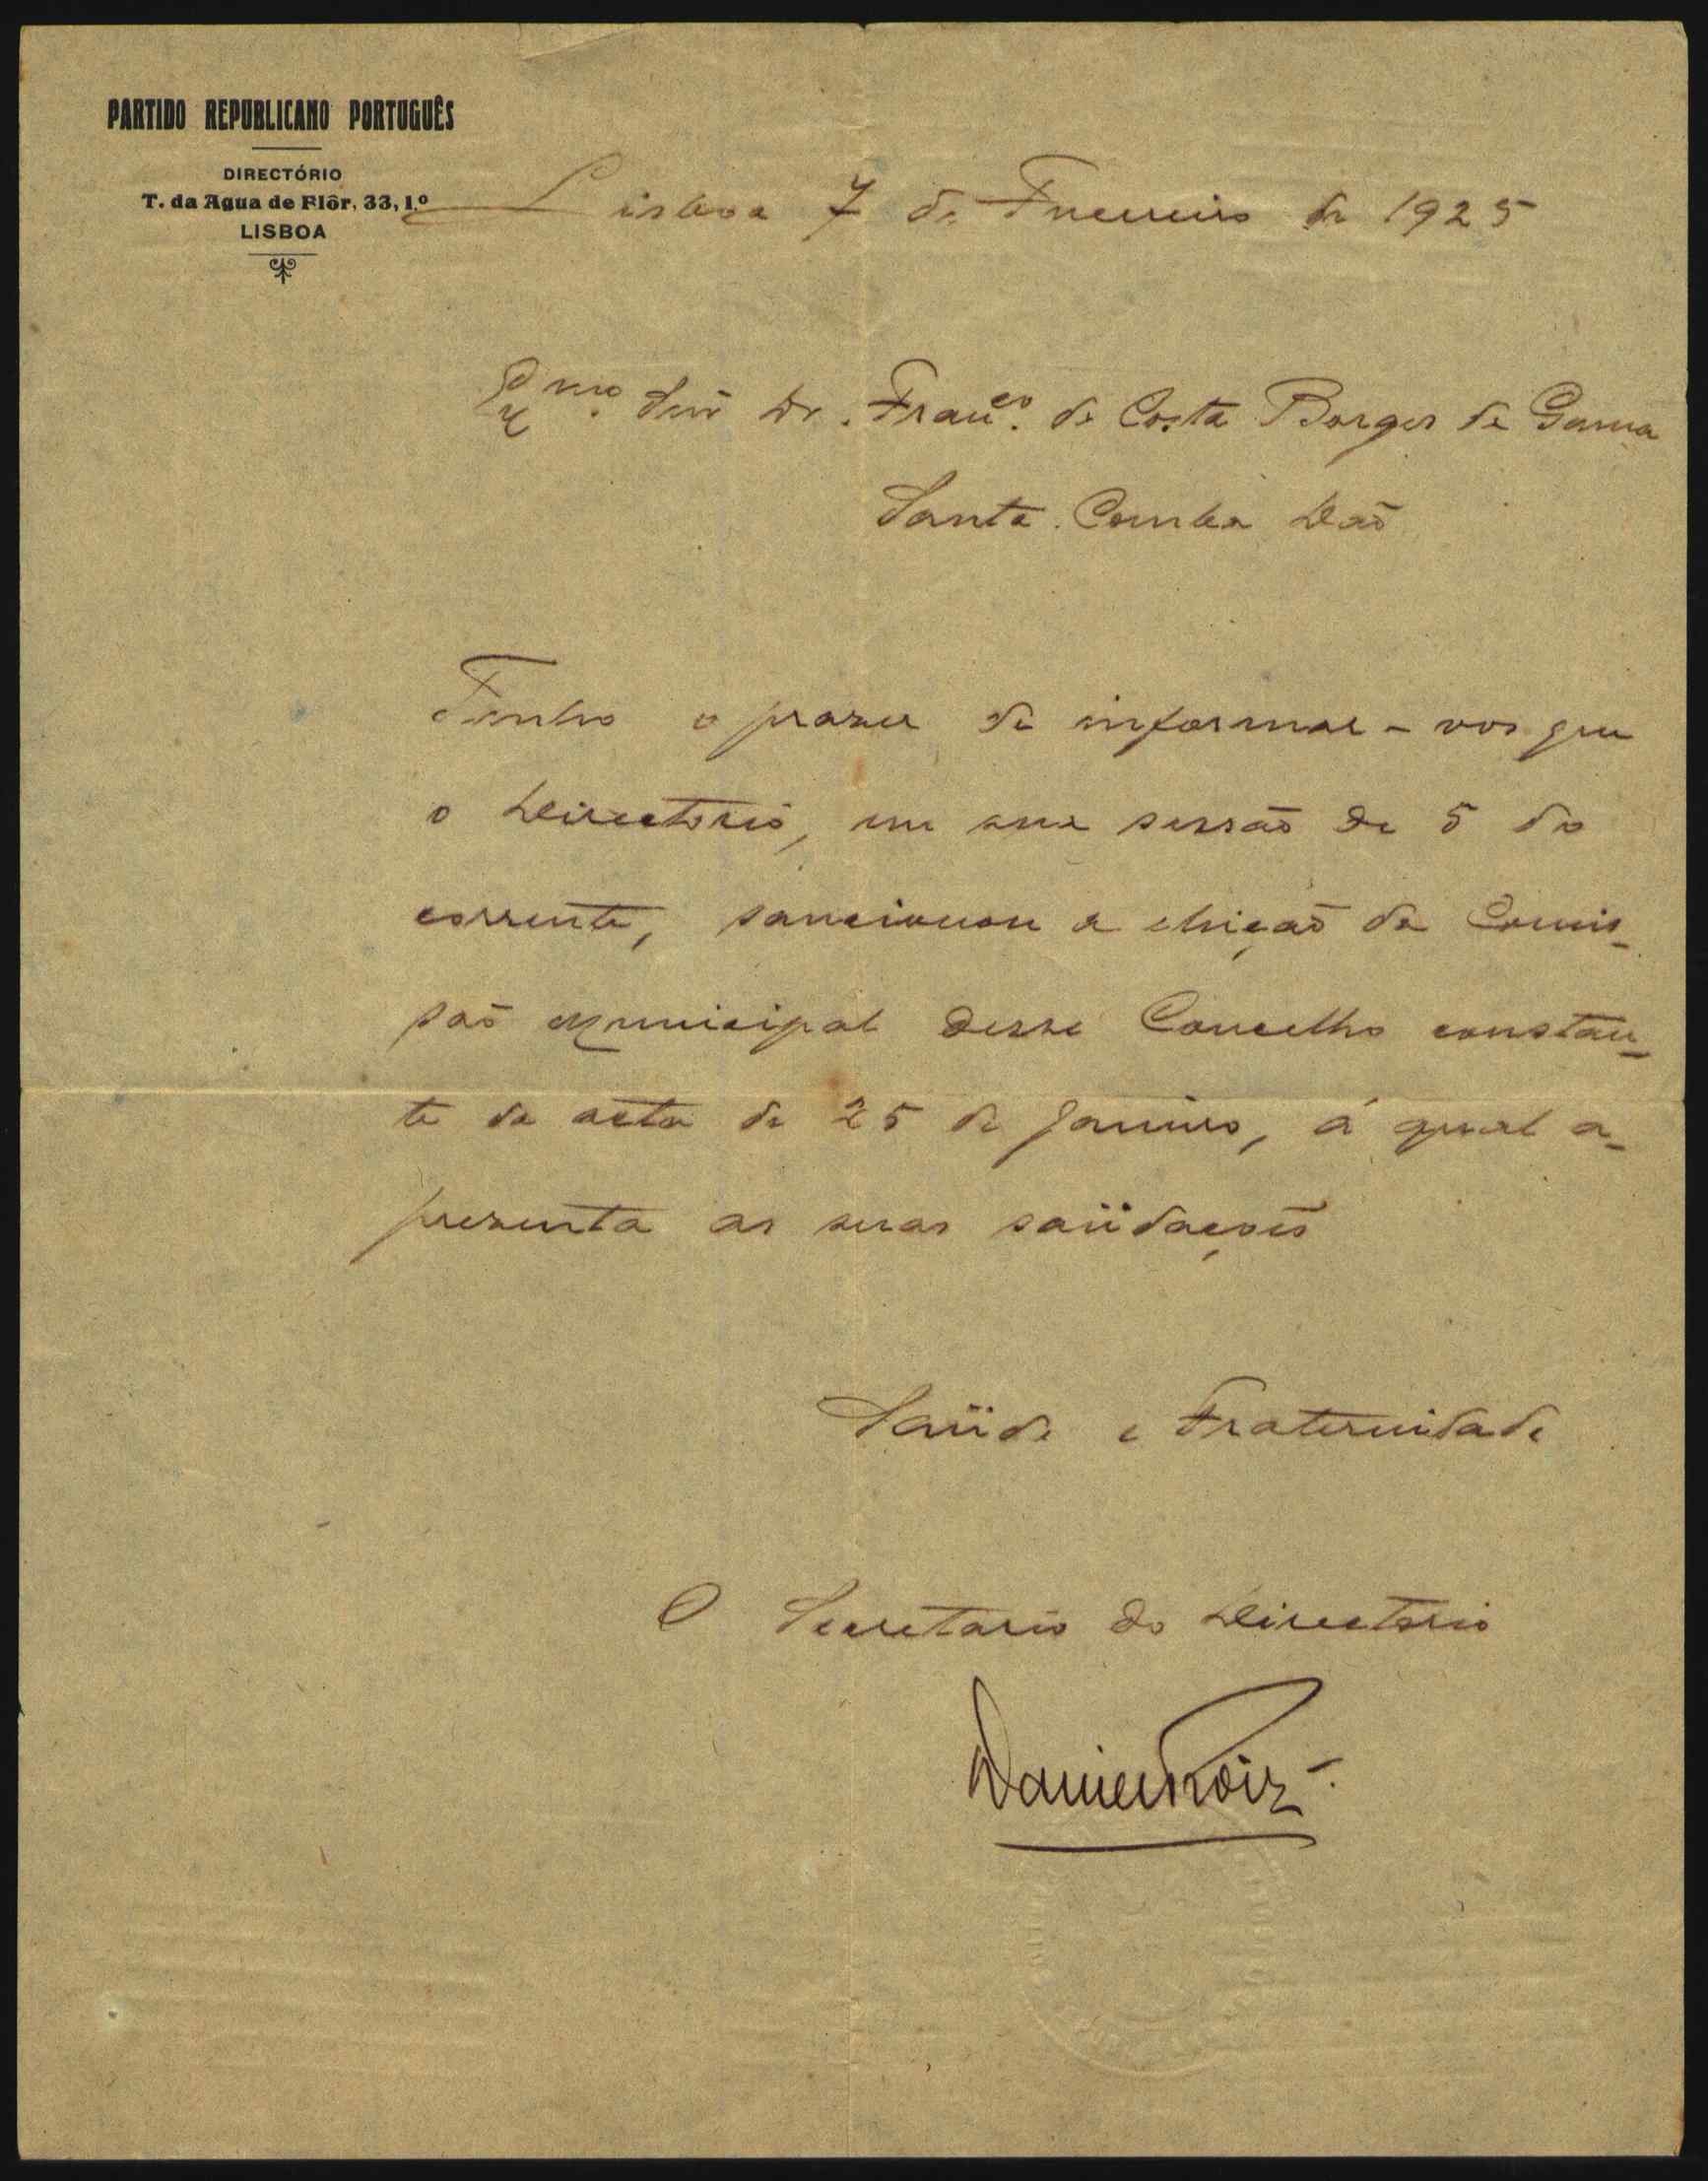 PARTIDO REPUBLICANO PORTUGUÊS
DIRECTÓRIO
T. da Agua de Flôr, 33, 1.º
LISBOA
Lisboa 7 de Fevereiro de 1925
Exmo. Snr Dr. Franco. da Costa Borges da Gama
Santa Comba Dão
Tenho o prazer de informar-vos que
o Directorio, em sua sessão de 5 do
corrente, sancionou a eleição da Comis-
são Municipal desse Concelho constan-
te da acta de 25 de Janeiro, á qual a-
presenta as suas saüdações
Saüde e Fraternidade
O Secretario do Directorio
Daniel Roiz.